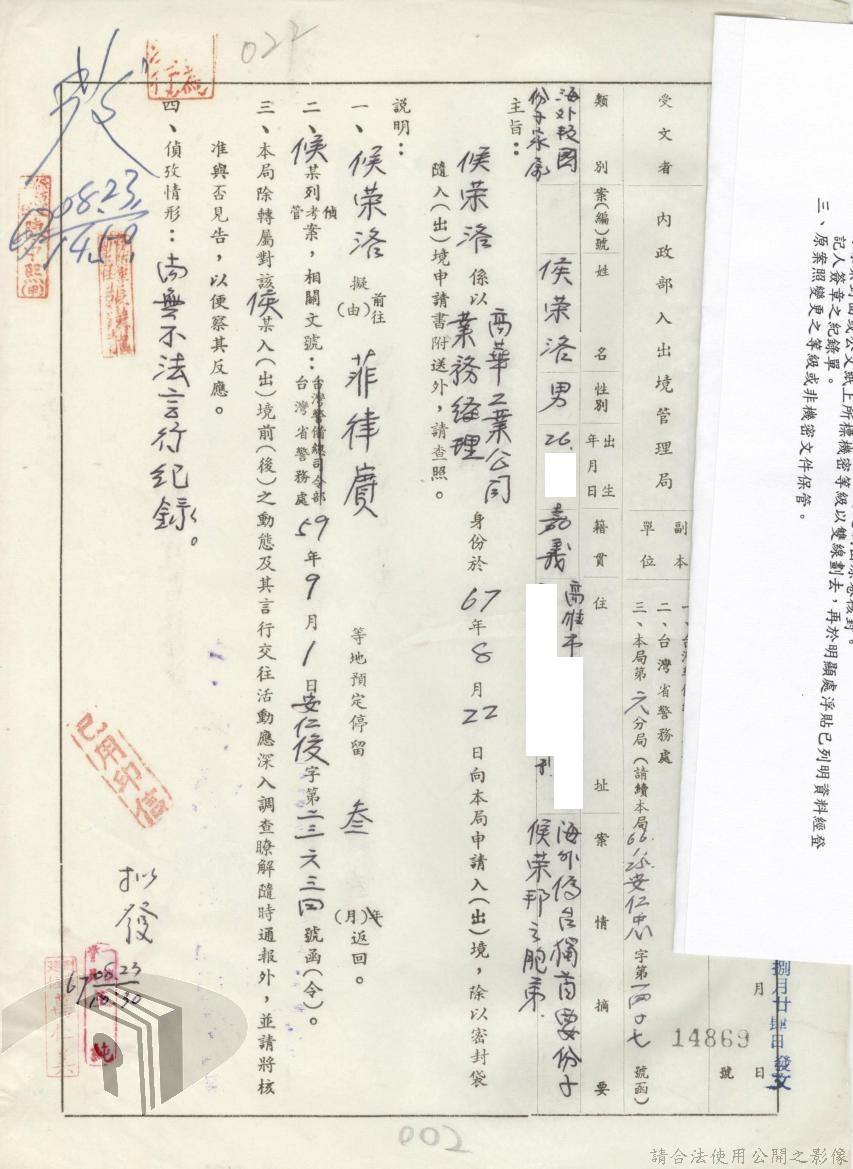 022
三、原案照變更之等級或非機密文件保管。
記人簽章之紀錄單。
公文紙上所標機密等級以雙線劃去,再於明顯處浮貼已列明資料經登
月 日
捌月廿肆日發文
14869 號
受文者 內政部入出境管理局
副本單位
二、台灣省警務處
三、本局第六分局(請續本局 安仁忠字第一四0七號函)
類別 案(編)號 姓名 性別 出生年月日 籍貫 住址 案情摘要
海外叛國份子家屬 侯荣洛 男 26. 嘉義 高雄市 海外偽台獨首要份子侯荣邦之胞弟
主旨:
侯荣洛 係以 高華工業公司業務経理 身份於 67 年 8 月 22 日向本局申請入(出)境,除以密封袋
隨入(出)境申請書附送外,請查照。
說明:
一、侯荣洛 擬前往(由) 菲律賓 等地預定停留 叁 年(月)返回。
二、侯某列偵管考案,相關文號:台灣警備總司令部 台灣省警務處 59 年 9 月 1 日安仁俊字第二三六三四號函(令)。
三、本局除轉屬對該侯某入(出)境前(後)之動態及其言行交往活動應深入調查瞭解隨時通報外,並請將核
准與否見告,以便察其反應。
四、偵攷情形:尚無不法言行紀錄。
已用印信
08.23
拟發
67 08.23
002
請合法使用公開之影像